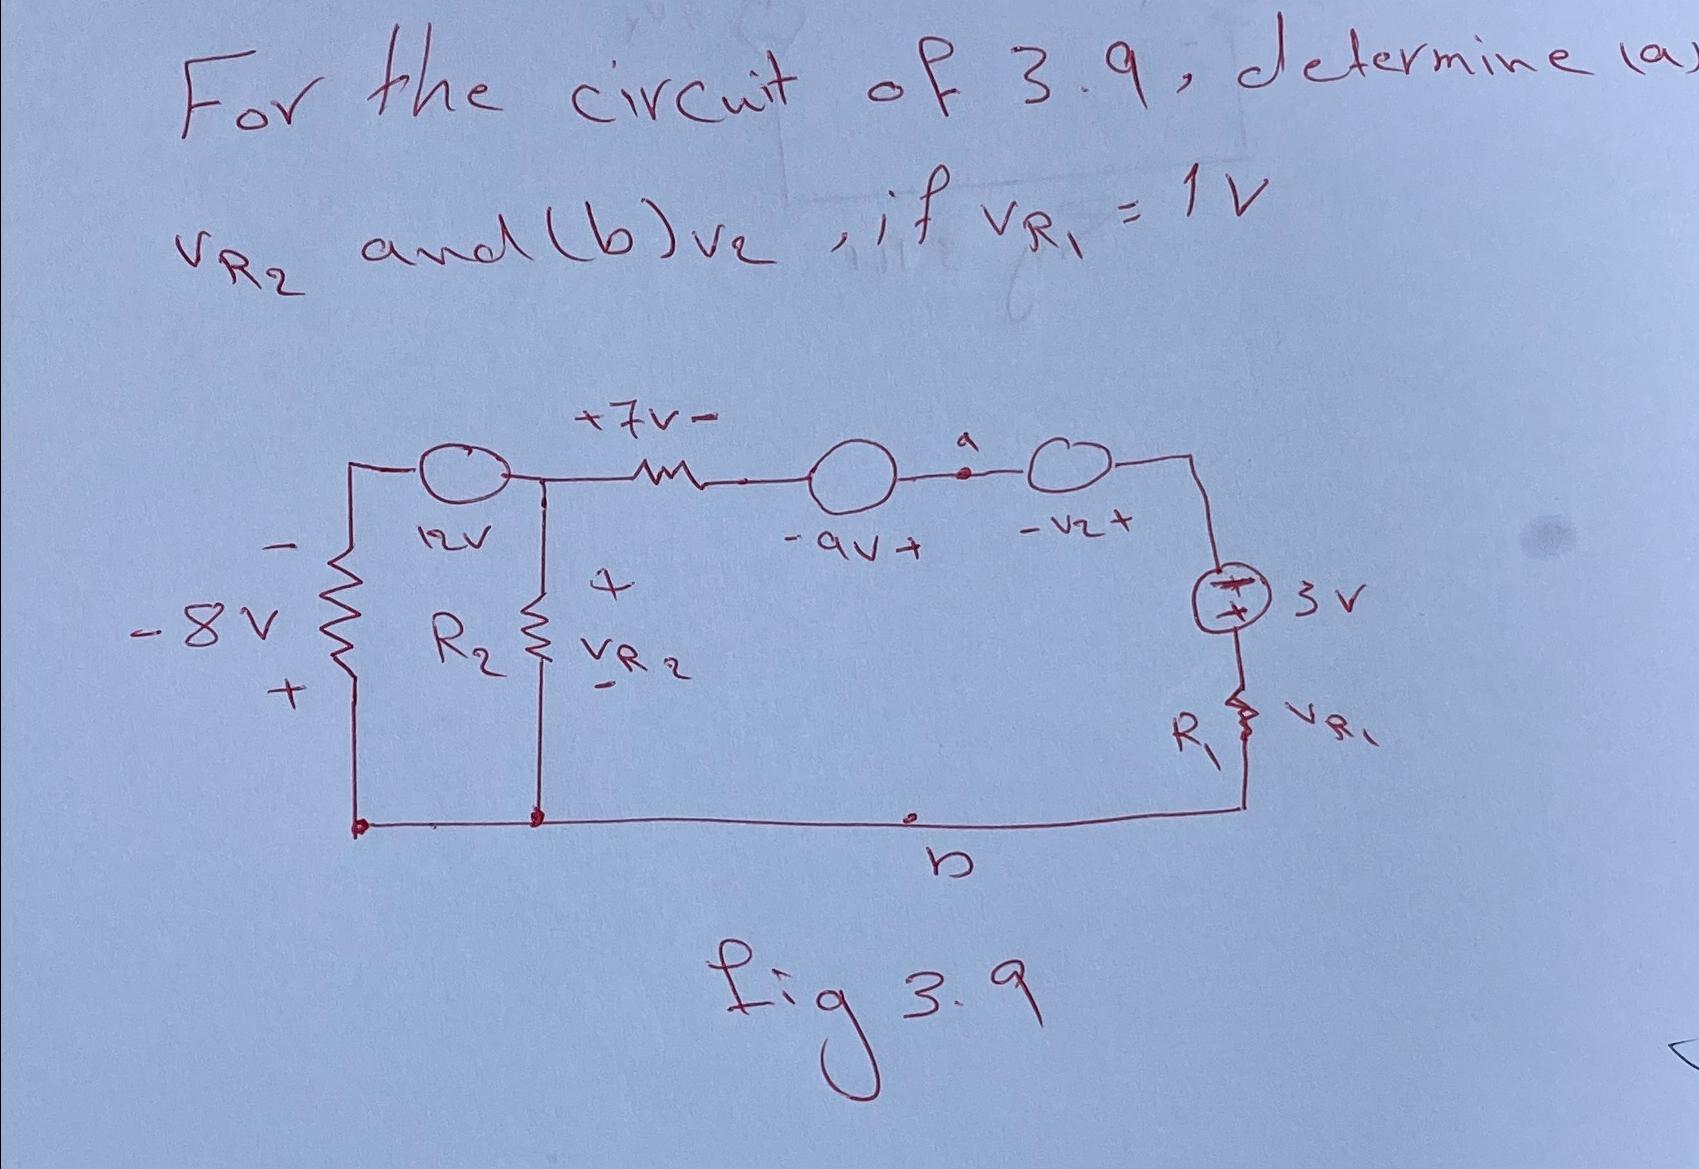 For the circuit of 3.9, determine (a)
vR2 and (b) v2, if vR1 = 1V
+7v-
a
12V
-9V+
-v2+
-
-8V
+
R2
+
vR2
-
+
+
3V
R1
vR1
b
fig 3.9